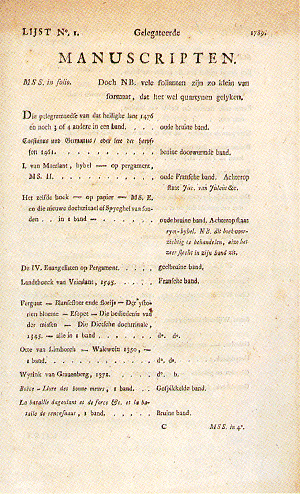 LIJST Nº. 1. Gelegateerde 1789.
MANUSCRIPTEN.
MSS. in folio. Doch NB. vele foliante zijn zo klein van
formaat, dat het wel quartynen gelyken.
Die pelegrimaedse van der heilighe lane 1476
en noch 3 of 4 andere in een band. oude bruine band.
Cassianus und Germanus/ over
sen 1461. bruine doorwurmde band.
I. van Maerlant, bybel — op pergament,
MS. II. oude Fransche band. Achterop
staat Jac. van
Het zelfde boek — op papier — MS. E.
en die nieuwe doctrinael of Spyeghel van son-
den. in 1 band — oude bruine band. Achterop staat
ryn-bybel. NB. dit boek voor-
zichtig te behandelen, alzo het
zeer slecht in zijn band zit.
De IV. Euangelisten op Pergament. geelbruine band.
Landsboeck van Vriendans, 1545. Fransche band.
Perguut — Blanseflour ende florijs — Der ysto-
rien bloeme — Esopet — Die bediedenis van
der missen — Die Dietsche doctrinale,
1345. — alle in 1 band dº. dº.
Otte van Limborch — Walewein 1350, —
in 1 band. dº. dº.
Wyrink van Grauenberg, 1372. dº. b.
Bible - Livre des bonne meurs, 1 band. Gespikkelde band.
La bataille et de force &c. et la ba-
taille de rencesvaux, 1 band. Bruine band.
C MSS. in 4º.